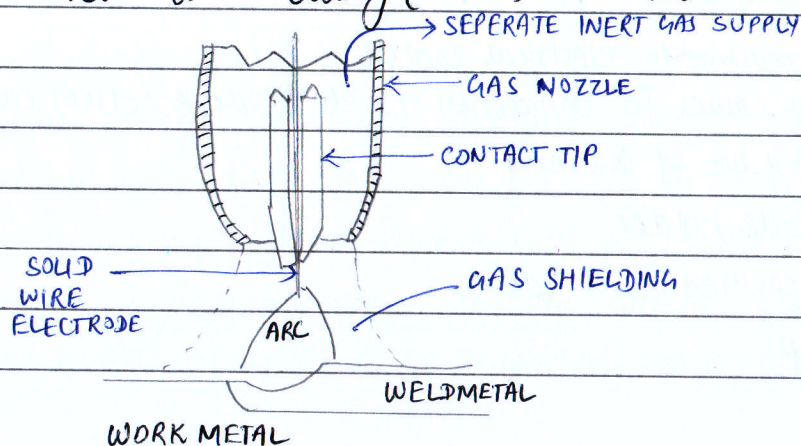 SEPERATE INERT GAS SUPPLY
GAS NOZZLE
CONTACT TIP
SOLID
WIRE
ELECTRODE
GAS SHIELDING
ARC
WELDMETAL
WORK METAL